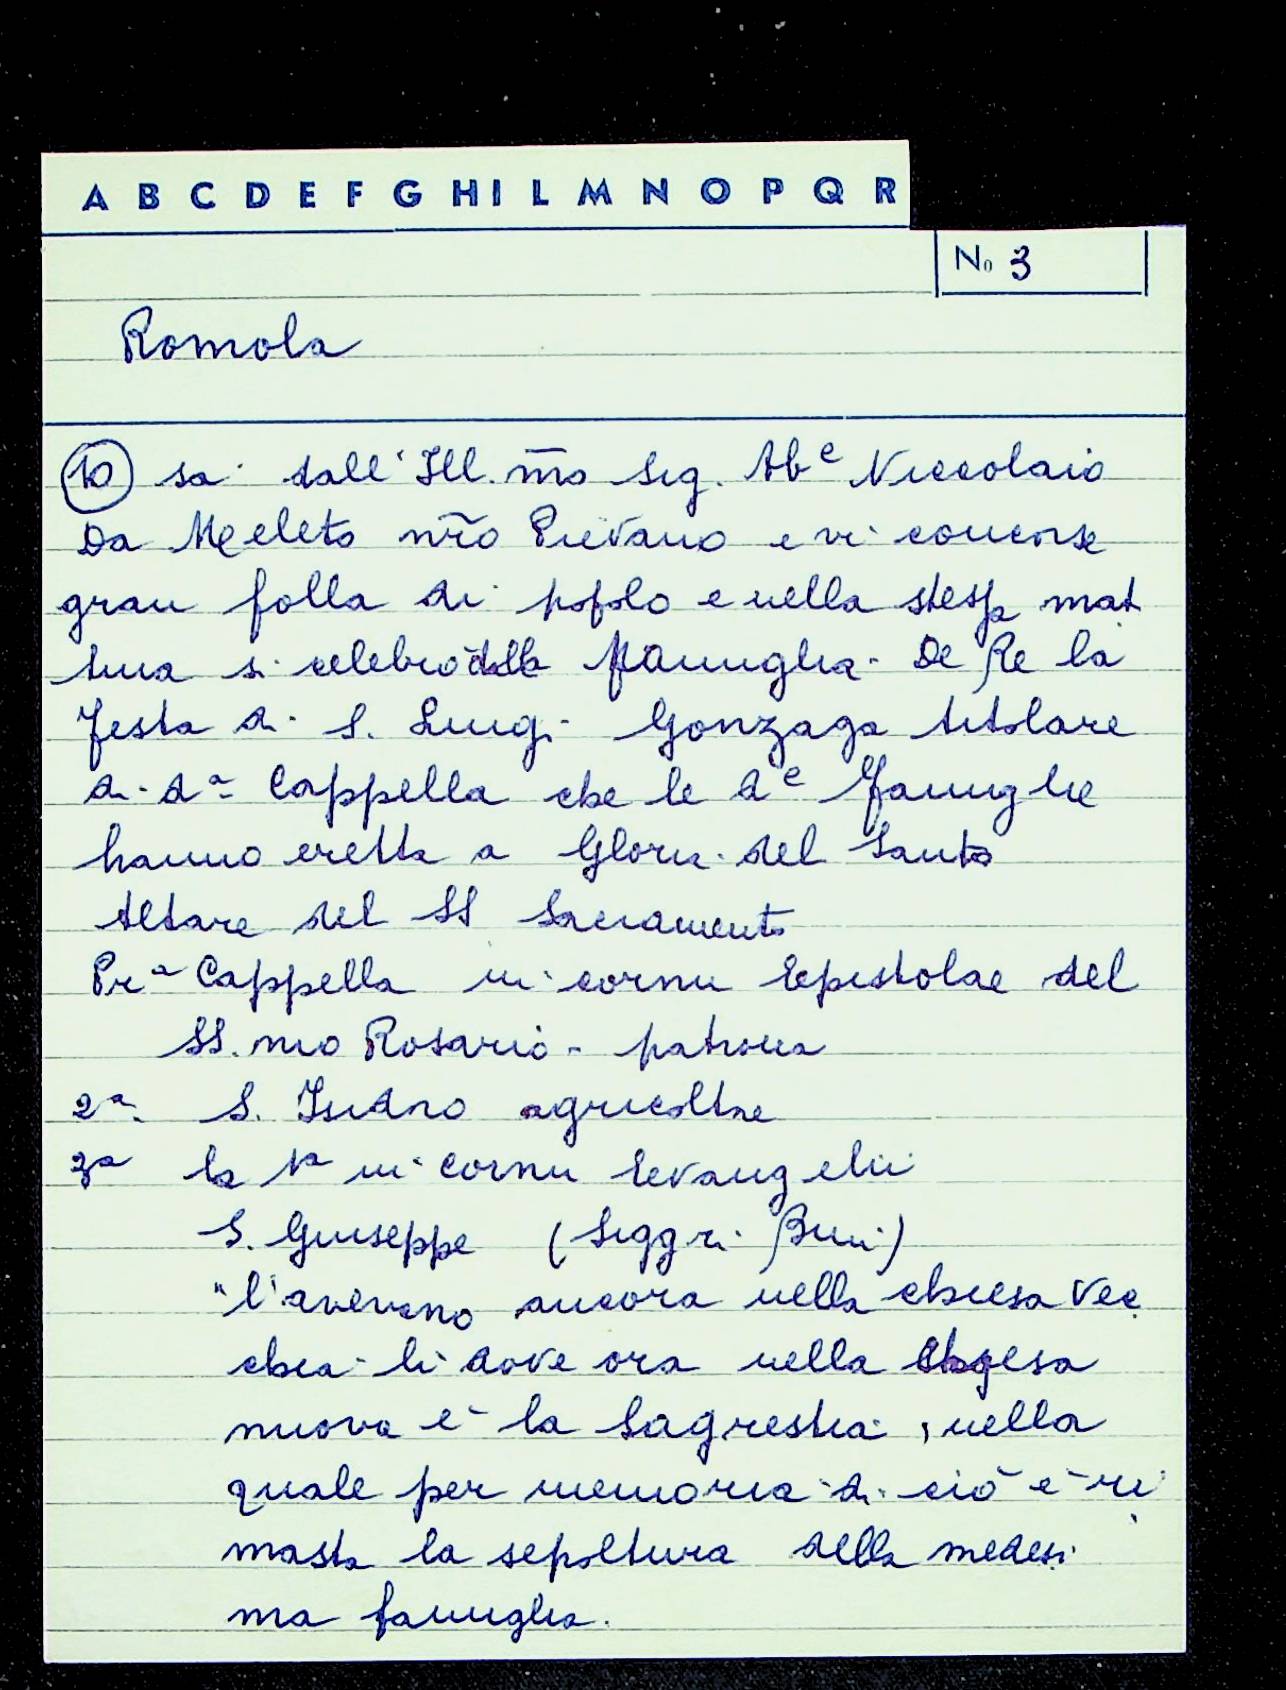 A B C D E F G H I L M N O P Q R
No 3
Romola
10 sa dall'Ill.mo Sig. Abe Niccolaio
Da Meleto nro Pievano e vi concorse
gran folla di popolo e nella stessa mat
tina si celebrò dalla famiglia De Re la
festa di S. Luigi Gonzaga titolare
di da Cappella che le de famiglie
hanno eretta a Gloria del Santo
Altare del SS Sacramento
Pra Cappella in cornu Epistolae del
SS.mo Rosario - patrona
2a S. Isidro agricoltore
3a la 1a in cornu Evangelii
S. Giuseppe (Siggri Buini)
"l'avevano ancora nella chiesa Vec
chia lì dove ora nella chiesa
nuova è la Sagrestia, nella
quale per memoria di ciò è ri
masta la sepoltura della medesi
ma famiglia.